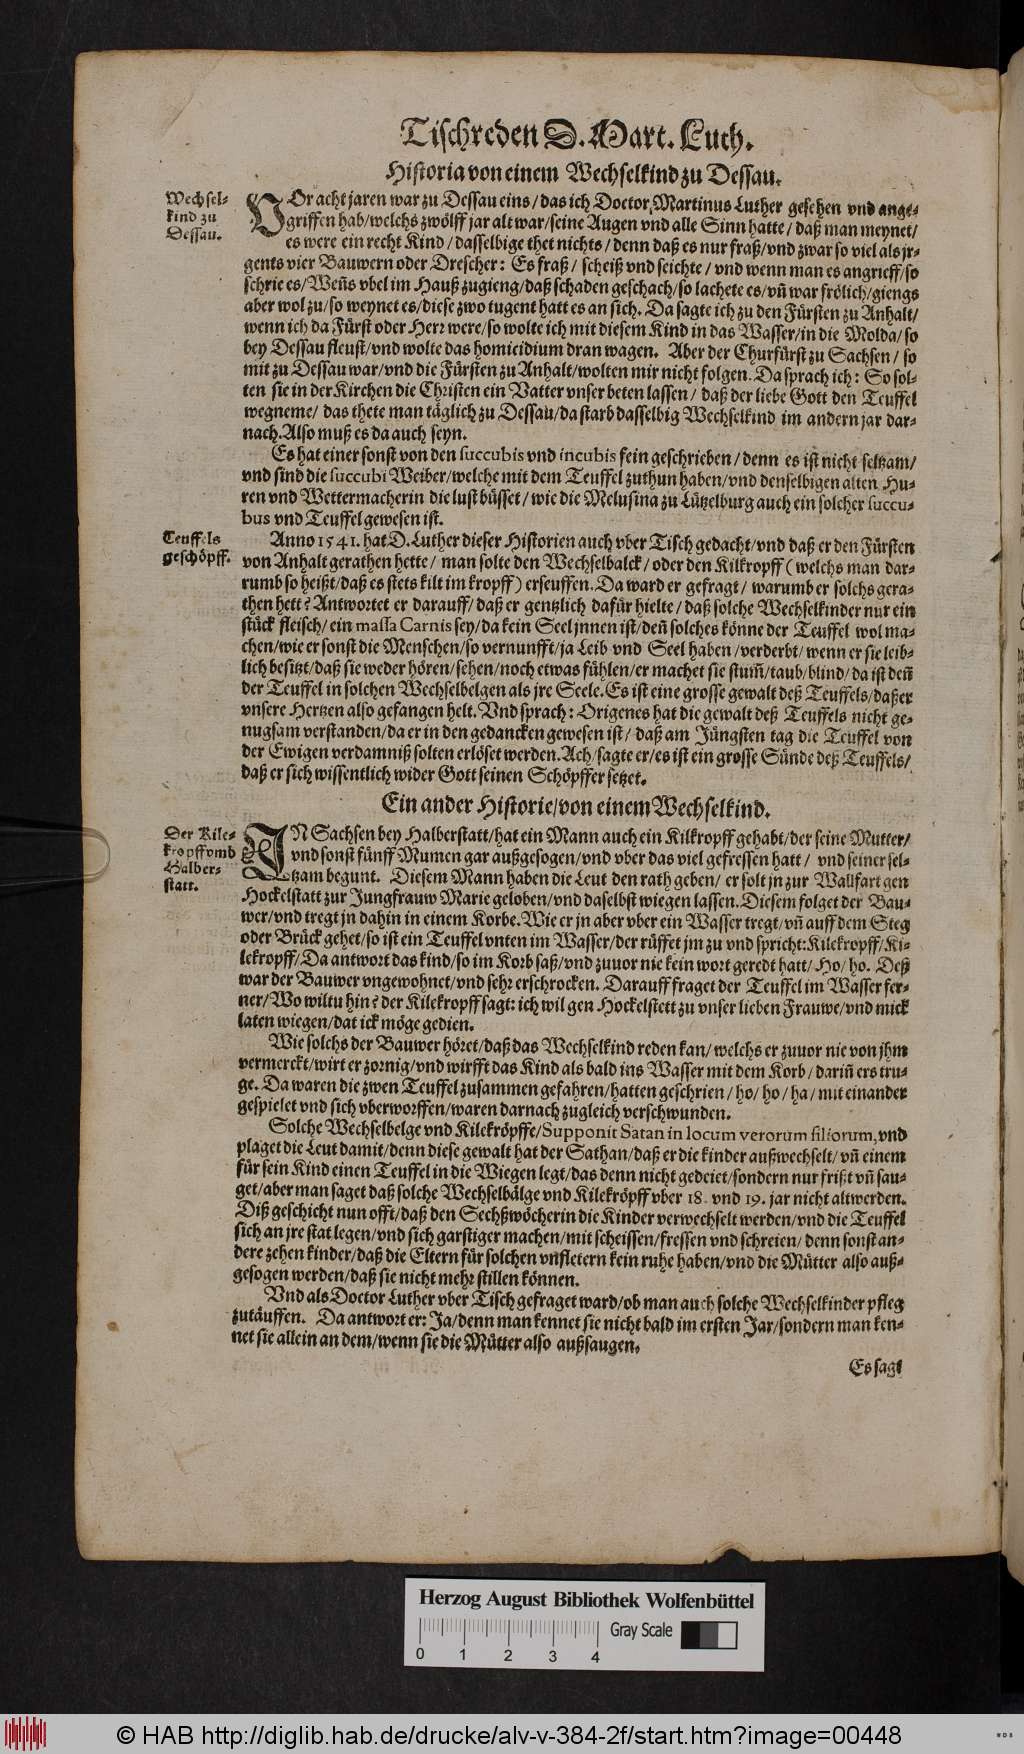 Tischreden D. Mart. Luth.
Historia von einem Wechselkind zu Dessau.
Wechsel-
kind zu
Dessau.
VOr acht jaren war zu Dessau eins / das ich Doctor Martinus Luther gesehen vnd ange-
griffen hab / welchs zwölff jar alt war / seine Augen vnd alle Sinn hatte / daß man meynet /
es were ein recht Kind / dasselbige thet nichts / denn daß es nur fraß / vnd zwar so viel als jr-
gents vier Bauwern oder Drescher: Es fraß / scheiß vnd seichte / vnd wenn man es angrieff / so
schrie es / Weñs vbel im Hauß zugieng / daß schaden geschach / so lachete es / vñ war frölich / giengs
aber wol zu / so weynet es / diese zwo tugent hatt es an sich. Da sagte ich zu den Fürsten zu Anhalt /
wenn ich da Fürst oder Herr were / so wolte ich mit diesem Kind in das Wasser / in die Molda / so
bey Dessau fleust / vnd wolte das homicidium dran wagen. Aber der Churfürst zu Sachsen / so
mit zu Dessau war / vnd die Fürsten zu Anhalt / wolten mir nicht folgen. Da sprach ich: So sol-
ten sie in der Kirchen die Christen ein Vatter vnser beten lassen / daß der liebe Gott den Teuffel
wegneme / das thete man täglich zu Dessau / da starb dasselbig Wechselkind im andern jar dar-
nach. Also muß es da auch seyn.
Es hat einer sonst von den succubis vnd incubis fein geschrieben / denn es ist nicht seltzam /
vnd sind die succubi Weiber / welche mit dem Teuffel zuthun haben / vnd denselbigen alten Hu-
ren vnd Wettermacherin die lust büsset / wie die Melusina zu Lützelburg auch ein solcher succu-
bus vnd Teuffel gewesen ist.
Teuffels
geschöpff.
Anno 1541. hat D. Luther dieser Historien auch vber Tisch gedacht / vnd daß er den Fürsten
von Anhalt gerathen hette / man solte den Wechselbalck / oder den Kilkropff ( welchs man dar-
rumb so heißt / daß es stets kilt im kropff ) erseuffen. Da ward er gefragt / warumb er solchs gera-
then hett? Antwortet er darauff / daß er gentzlich dafür hielte / daß solche Wechselkinder nur ein
stück fleisch / ein massa Carnis sey / da kein Seel jnnen ist / deñ solches könne der Teuffel wol ma-
chen / wie er sonst die Menschen / so vernunfft / ja Leib vnd Seel haben / verderbt / wenn er sie leib-
lich besitzt / daß sie weder hören / sehen / noch etwas fühlen / er machet sie stum̃ / taub / blind / da ist deñ
der Teuffel in solchen Wechselbelgen als jre Seele. Es ist eine grosse gewalt deß Teuffels / daß er
vnsere Hertzen also gefangen helt. Vnd sprach: Origenes hat die gewalt deß Teuffels nicht ge-
nugsam verstanden / da er in den gedancken gewesen ist / daß am Jüngsten tag die Teuffel von
der Ewigen verdamniß solten erlöset werden. Ach / sagte er / es ist ein grosse Sünde deß Teuffels /
daß er sich wissentlich wider Gott seinen Schöpffer setzet.
Ein ander Historie / von einem Wechselkind.
Der Kile-
kropff vmb
Halber-
statt.
IN Sachsen bey Halberstatt / hat ein Mann auch ein Kilkropff gehabt / der seine Mutter /
vnd sonst fünff Mumen gar außgesogen / vnd vber das viel gefressen hatt / vnd seiner sel-
tzam begunt. Diesem Mann haben die Leut den rath geben / er solt jn zur Wallfart gen
Hockelstatt zur Jungfrauw Marie geloben / vnd daselbst wiegen lassen. Diesem folget der Bau-
wer / vnd tregt jn dahin in einem Korbe. Wie er jn aber vber ein Wasser tregt / vñ auff dem Steg
oder Brück gehet / so ist ein Teuffel vnten im Wasser / der rüffet jm zu vnd spricht: Kilekropff / Ki-
lekropff / Da antwort das kind / so im Korb saß / vnd zuuor nie kein wort geredt hatt / Ho / ho. Deß
war der Bauwer vngewohnet / vnd sehr erschrocken. Darauff fraget der Teuffel im Wasser fer-
ner / Wo wiltu hin? der Kilekropff sagt: ich wil gen Hockelstett zu vnser lieben Frauwe / vnd mick
laten wiegen / dat ick möge gedien.
Wie solchs der Bauwer höret / daß das Wechselkind reden kan / welchs er zuuor nie von jhm
vermerckt / wirt er zornig / vnd wirfft das Kind als bald ins Wasser mit dem Korb / dariñ ers tru-
ge. Da waren die zwen Teuffel zusammen gefahren / hatten geschrien / ho / ho / ha / mit einander
gespielet vnd sich vberworffen / waren darnach zugleich verschwunden.
Solche Wechselbelge vnd Kilekröpffe / Supponit Satan in locum verorum filiorum, vnd
plaget die Leut damit / denn diese gewalt hat der Sathan / daß er die kinder außwechselt / vñ einem
für sein Kind einen Teuffel in die Wiegen legt / das denn nicht gedeiet / sondern nur frißt vñ sau-
get / aber man saget daß solche Wechselbälge vnd Kilekröpff vber 18. vnd 19. jar nicht alt werden.
Diß geschicht nun offt / daß den Sechßwöcherin die Kinder verwechselt werden / vnd die Teuffel
sich an jre stat legen / vnd sich garstiger machen / mit scheissen / fressen vnd schreien / denn sonst an-
dere zehen kinder / daß die Eltern für solchen vnfletern kein ruhe haben / vnd die Mütter also auß-
gesogen werden / daß sie nicht mehr stillen können.
Vnd als Doctor Luther vber Tisch gefraget ward / ob man auch solche Wechselkinder pfleg
zutäuffen. Da antwort er: Ja / denn man kennet sie nicht bald im ersten Jar / sondern man ken-
net sie allein an dem / wenn sie die Mütter also außsaugen.
Es sagt
Herzog August Bibliothek Wolfenbüttel
Gray Scale
0 1 2 3 4
© HAB http://diglib.hab.de/drucke/alv-v-384-2f/start.htm?image=00448